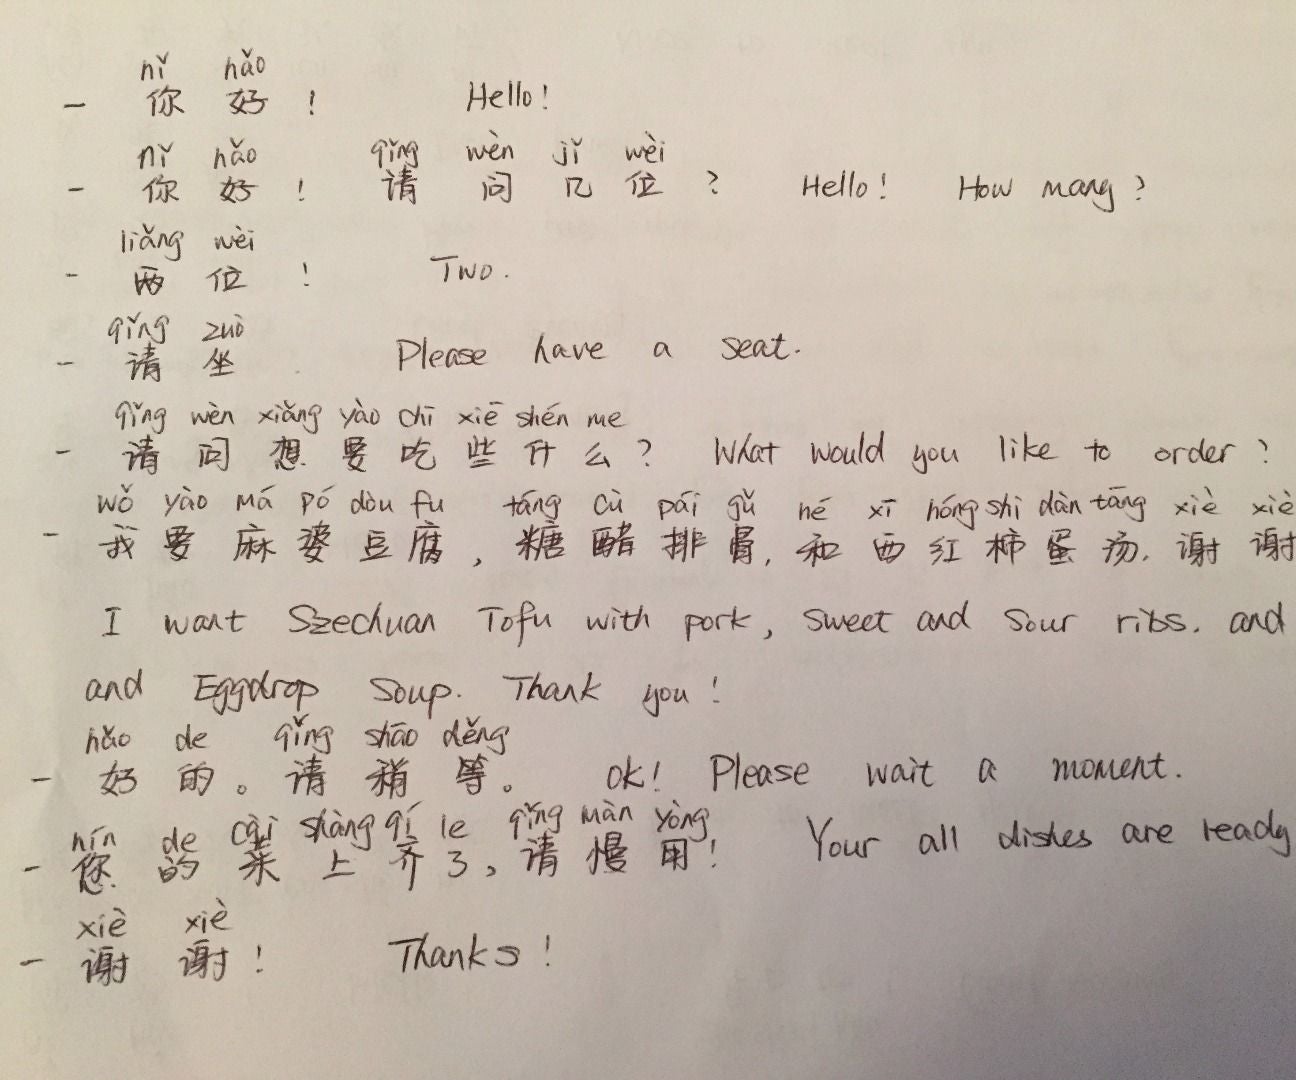 nǐ hǎo
- 你 好 ! Hello!
nǐ hǎo qǐng wèn jǐ wèi
- 你 好 ! 请 问 几 位 ? Hello! How mang?
liǎng wèi
- 两 位 ! Two.
qǐng zuò
- 请 坐 . Please have a seat.
qǐng wèn xiǎng yào chī xiē shén me
- 请 问 想 要 吃 些 什 么 ? What would you like to order?
wǒ yào má pó dòu fu táng cù pái gǔ hé xī hóng shì dàn tāng xiè xiè
- 我 要 麻 婆 豆 腐 , 糖 醋 排 骨, 和 西 红 柿 蛋 汤. 谢 谢
I want Szechuan Tofu with pork, sweet and sour ribs. and
and Eggdrop soup. Thank you!
hǎo de qǐng shāo děng
- 好 的 。 请 稍 等 。 ok! Please wait a moment.
nín de cài shàng qí le qǐng màn yòng
- 您 的 菜 上 齐 了, 请 慢 用! Your all dishes are ready
xiè xiè
- 谢 谢 ! Thanks!